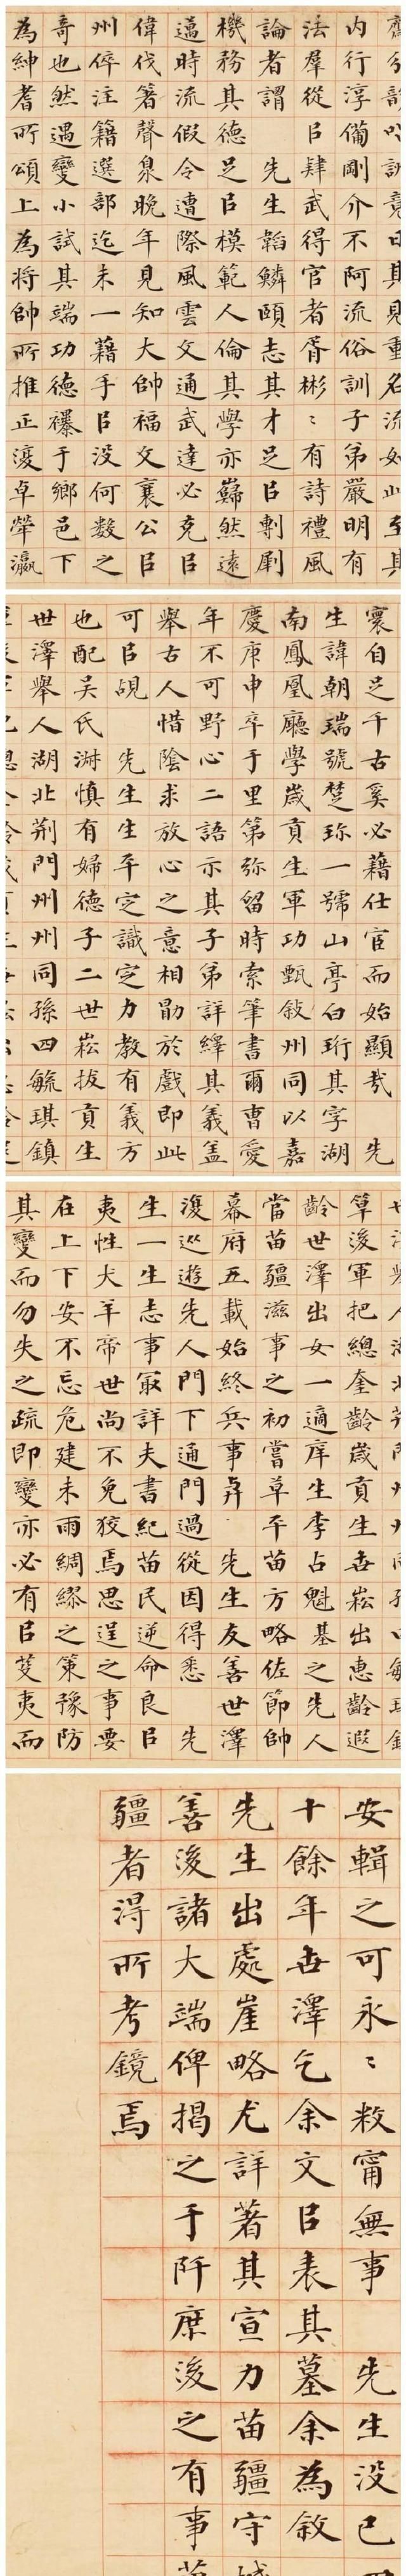 訓竟日其見重名流如此至其
內行淳備剛介不阿流俗訓子弟嚴明有
法羣從㠯肆武得官者胥彬〻有詩禮風
論者謂 先生韜鱗頤志其才足㠯剸劇
機務其德足㠯模範人倫其學亦巋然遠
邁時流假令遭際風雲文通武達必克㠯
偉伐箸聲臮晚年見知大帥福文襄公㠯
州倅注籍選部迄未一藉手㠯没何數之
奇也然遇變小試其端功德襮于鄉邑下
為紳耆所頌上為將帥所推正復卓犖瀛
寰自足千古奚必藉仕宦而始顯㢤 先
生諱朝瑞號楚珍一號山亭白珩其字湖
南鳳凰廳學歲貢生軍功甄敘州同以嘉
慶庚申卒于里第弥留時索筆書爾曹愛
年不可野心二語示其子弟詳繹其義蓋
舉古人惜陰求放心之意相勖於戲即此
可㠯覘 先生生平定識定力教有義方
也配吴氏淑慎有婦德子二世崧拔貢生
世澤舉人湖北荊門州州同孫四毓琪鎮
筸後軍把總奎齡歲貢生世崧出惠齡遐
齡世澤出女一適庠生李占魁基之先人
當苗疆滋事之初嘗草平苗方略佐節帥
幕府五載始終兵事弆 先生友善世澤
復巡遊先人門下通門過從因得悉 先
生一生志事冣詳夫書紀苗民逆命良㠯
夷性犬羊帝世尚不免狡焉思逞之事要
在上下安不忘危建未雨綢繆之策豫防
其變而勿失之疏即變亦必有㠯芟夷而
安輯之可永〻敉甯無事 先生没已
十餘年世澤乞余文㠯表其墓余為敘
先生出處崖略尤詳著其宣力苗疆守城
善後諸大端俾揭之于阡庶後之有事苗
疆者得所考鏡焉